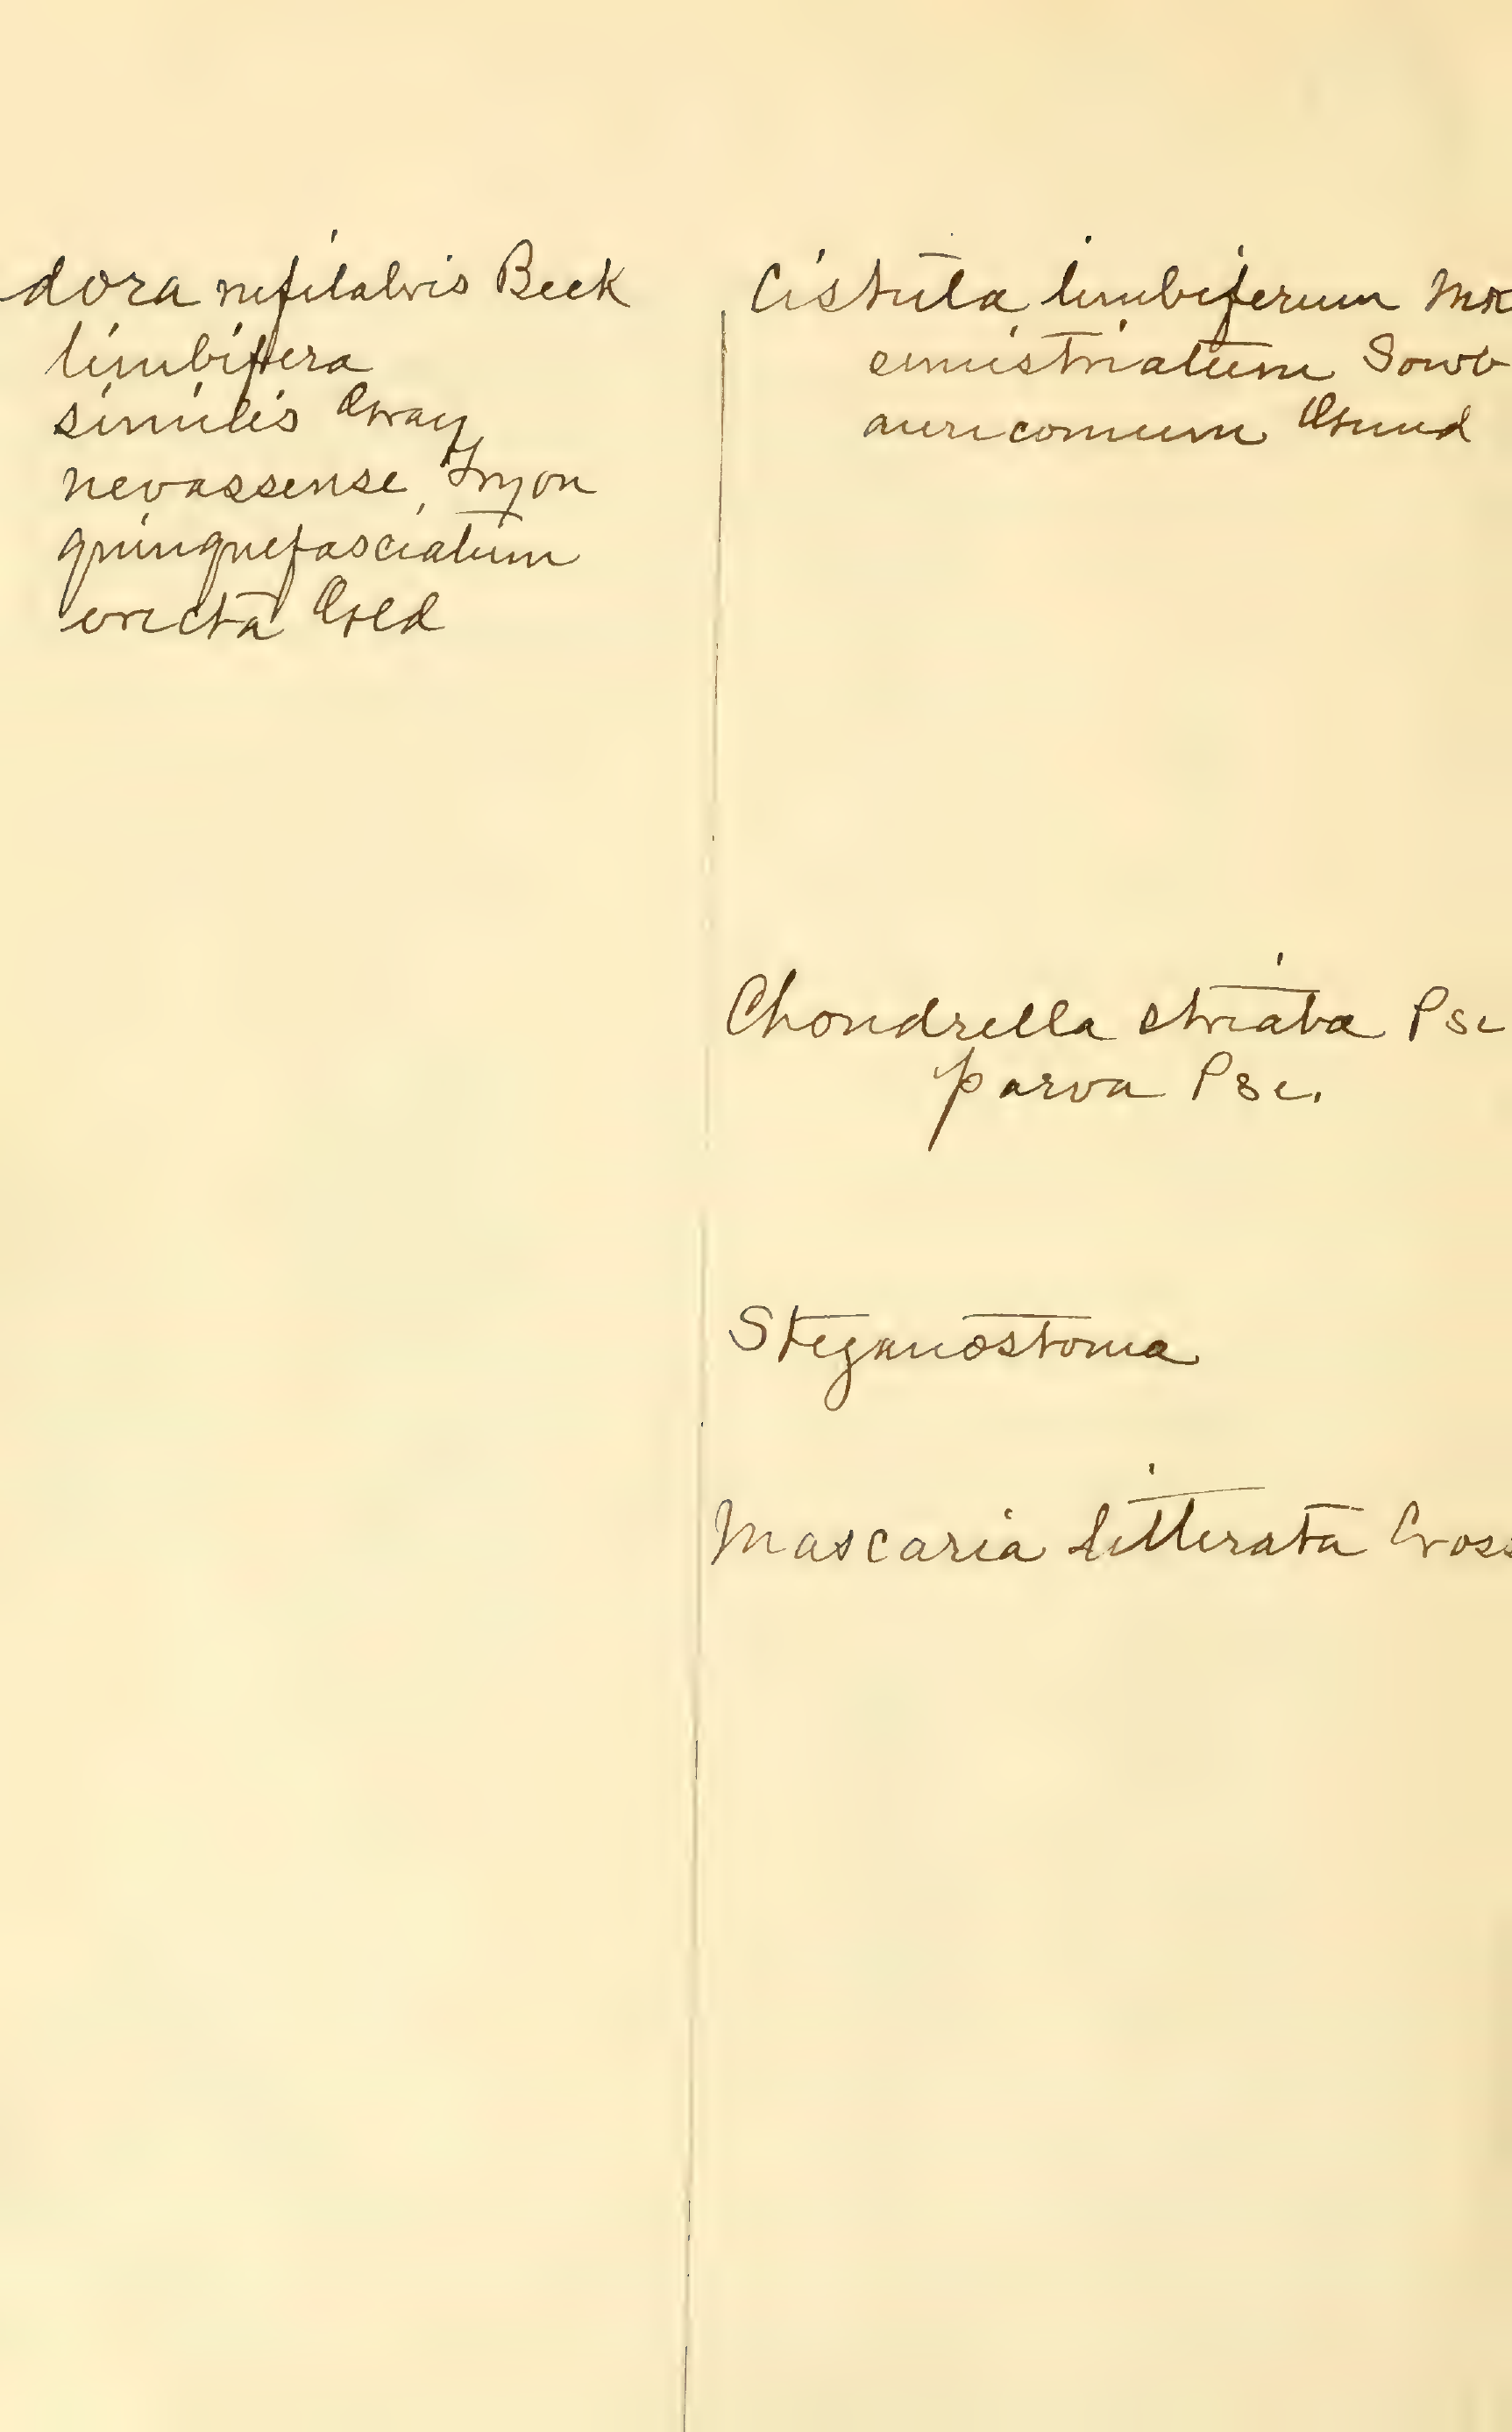 dora rufilabris Beck
limbifera
similis Gray
nevassense, Tryon
quinquefasciatum
erecta Gld
Cistula limbiferum Mk
semistriatum Sowb
auricomum Gund
Chondrella striata Psc
parva Psc.
Steganostoma
Mascaria litterata Cross